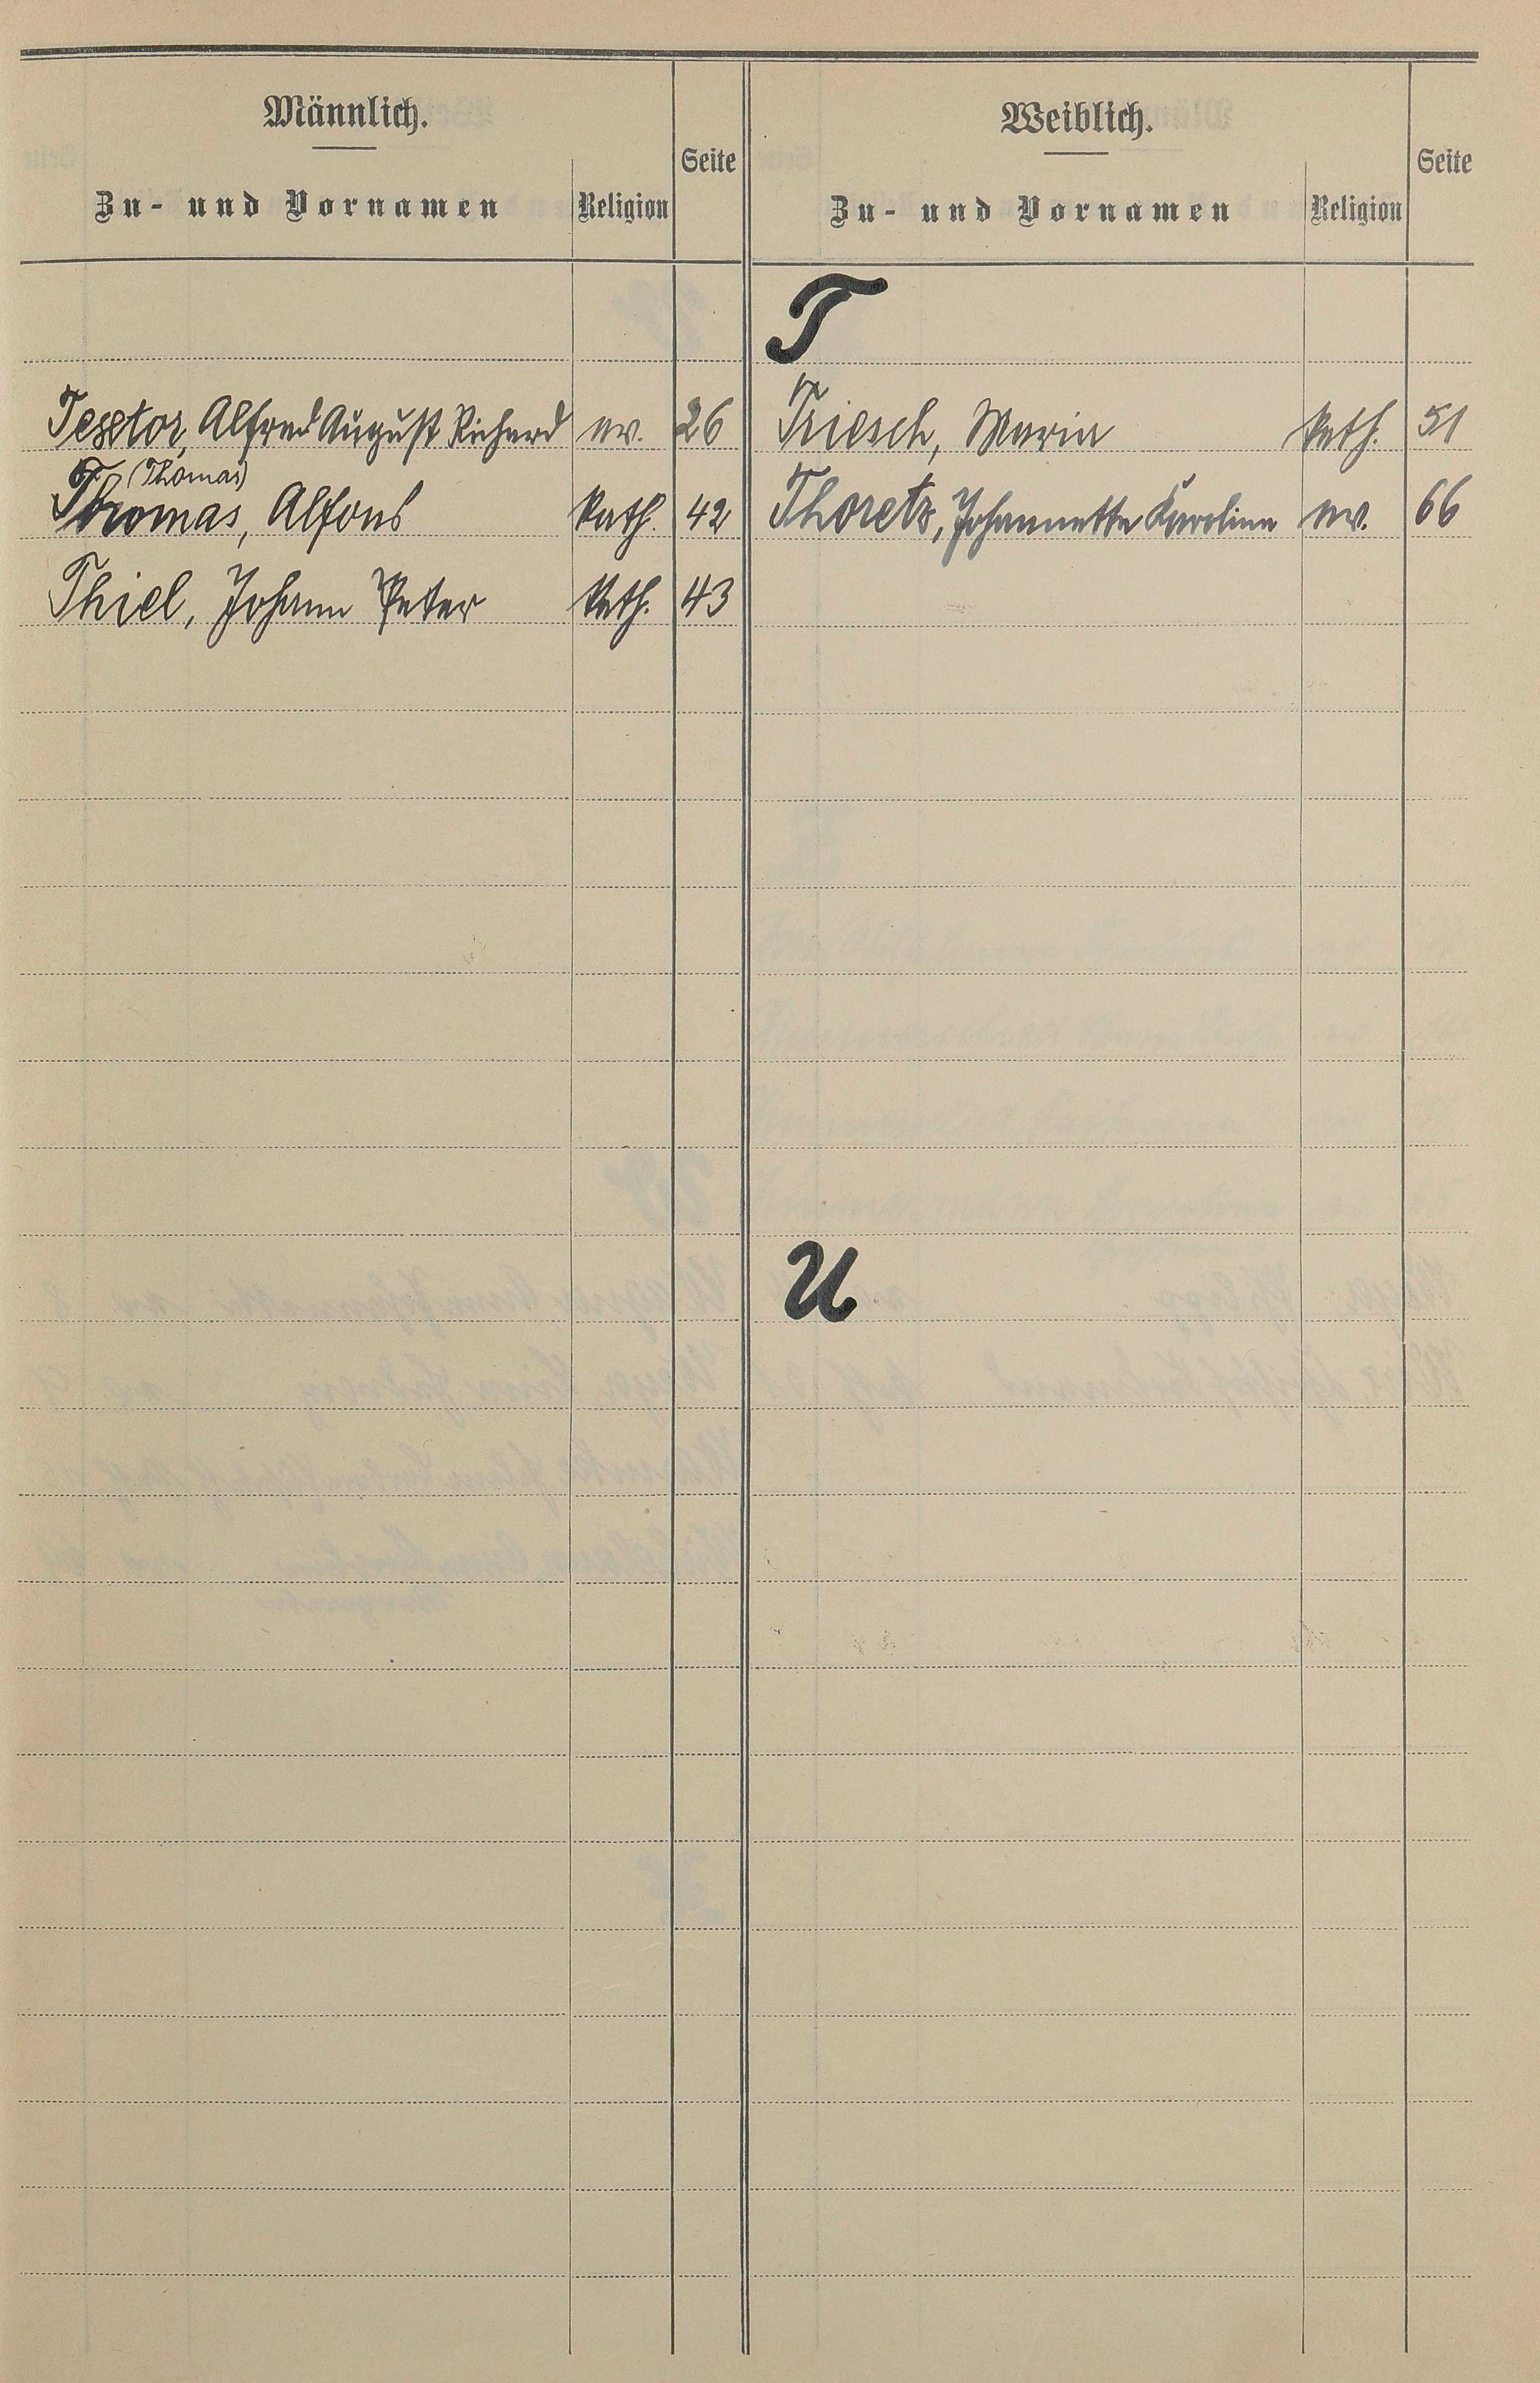 Männlich.
Zu- und Vornamen Religion Seite
Weiblich.
Zu- und Vornamen Religion Seite
T
Textor, Alfred August Richard ev. 26
Triesch, Maria kath. 51
(Thomas)
Thomas, Alfons kath. 42
Thoretz, Johannette Karoline ev. 66
Thiel, Johann Peter kath. 43
U